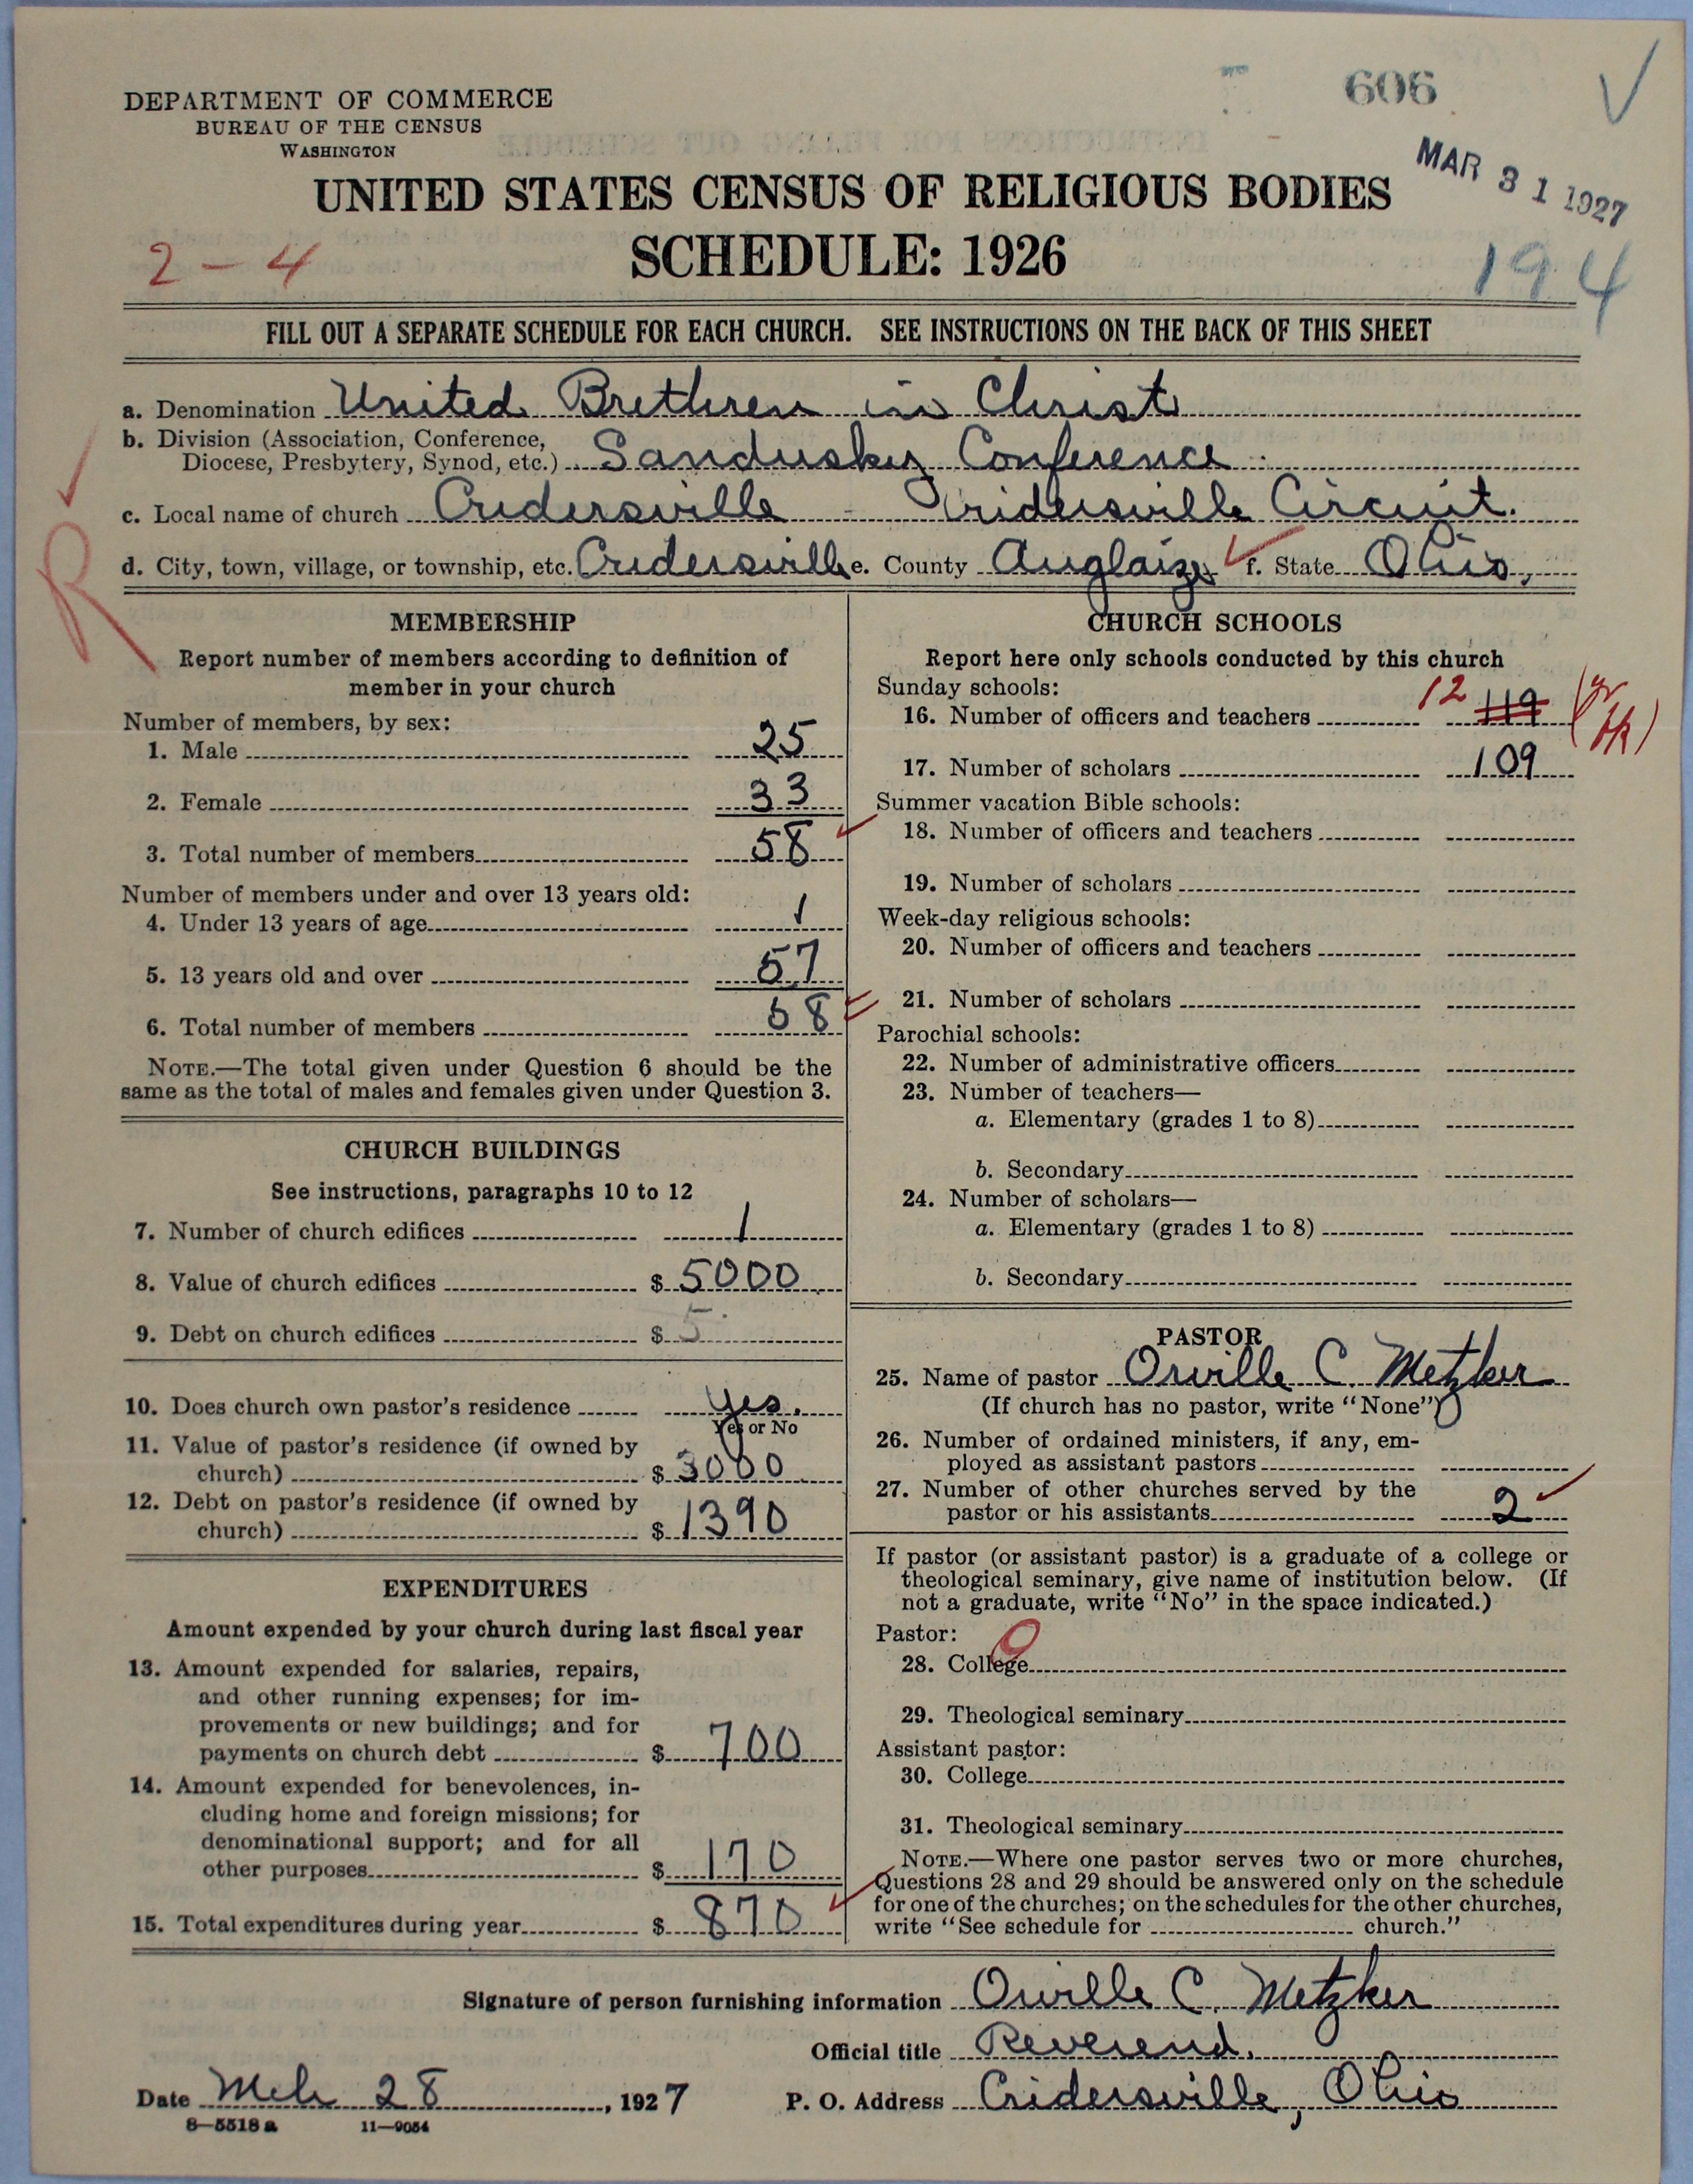 606
DEPARTMENT OF COMMERCE
BUREAU OF THE CENSUS
WASHINGTON
MAR 31 1927
UNITED STATES CENSUS OF RELIGIOUS BODIES
2-4 SCHEDULE: 1926 194
FILL OUT A SEPARATE SCHEDULE FOR EACH CHURCH. SEE INSTRUCTIONS ON THE BACK OF THIS SHEET
a. Denomination United Brethren in Christ
b. Division (Association, Conference,
Diocese, Presbytery, Synod, etc.) Sandusky Conference
c. Local name of church Cridersville - Cridersville Circuit.
d. City, town, village, or township, etc. Cridersville e. County Auglaize f. State Ohio,
R
MEMBERSHIP
Report number of members according to definition of
member in your church
Number of members, by sex:
1. Male 25
2. Female 33
3. Total number of members 58
Number of members under and over 13 years old:
4. Under 13 years of age 1
5. 13 years old and over 57
6. Total number of members 58
NOTE.—The total given under Question 6 should be the
same as the total of males and females given under Question 3.
CHURCH BUILDINGS
See instructions, paragraphs 10 to 12
7. Number of church edifices 1
8. Value of church edifices $ 5000
9. Debt on church edifices $ 5
10. Does church own pastor's residence Yes.
Yes or No
11. Value of pastor's residence (if owned by
church) $ 3000
12. Debt on pastor's residence (if owned by
church) $ 1390
EXPENDITURES
Amount expended by your church during last fiscal year
13. Amount expended for salaries, repairs,
and other running expenses; for im-
provements or new buildings; and for
payments on church debt $ 700
14. Amount expended for benevolences, in-
cluding home and foreign missions; for
denominational support; and for all
other purposes $ 170
15. Total expenditures during year $ 870
CHURCH SCHOOLS
Report here only schools conducted by this church
Sunday schools:
16. Number of officers and teachers 12 119
17. Number of scholars 109
Summer vacation Bible schools:
18. Number of officers and teachers
19. Number of scholars
Week-day religious schools:
20. Number of officers and teachers
21. Number of scholars
Parochial schools:
22. Number of administrative officers
23. Number of teachers—
a. Elementary (grades 1 to 8)
b. Secondary
24. Number of scholars—
a. Elementary (grades 1 to 8)
b. Secondary
PASTOR
25. Name of pastor Orville C. Metzker
(If church has no pastor, write "None")
26. Number of ordained ministers, if any, em-
ployed as assistant pastors
27. Number of other churches served by the
pastor or his assistants 2
If pastor (or assistant pastor) is a graduate of a college or
theological seminary, give name of institution below. (If
not a graduate, write "No" in the space indicated.)
Pastor:
28. College
29. Theological seminary
Assistant pastor:
30. College
31. Theological seminary
NOTE.—Where one pastor serves two or more churches,
Questions 28 and 29 should be answered only on the schedule
for one of the churches; on the schedules for the other churches,
write "See schedule for church."
Signature of person furnishing information Orville C. Metzker
Official title Reverend.
Date Mch 28, 1927 P. O. Address Cridersville, Ohio
8—5518 a 11—9054